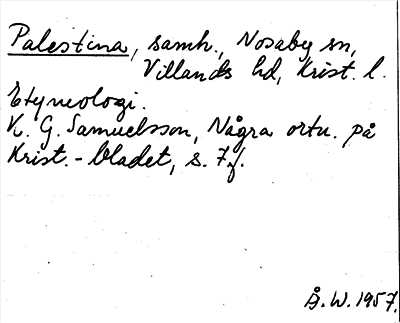 Palestina, samh., Nosaby sn,
Villands hd, Krist. l.
Etymologi.
K. G. Samuelsson, Några ortn. på
Krist.-bladet, s. 7f.
Å. W. 1957.